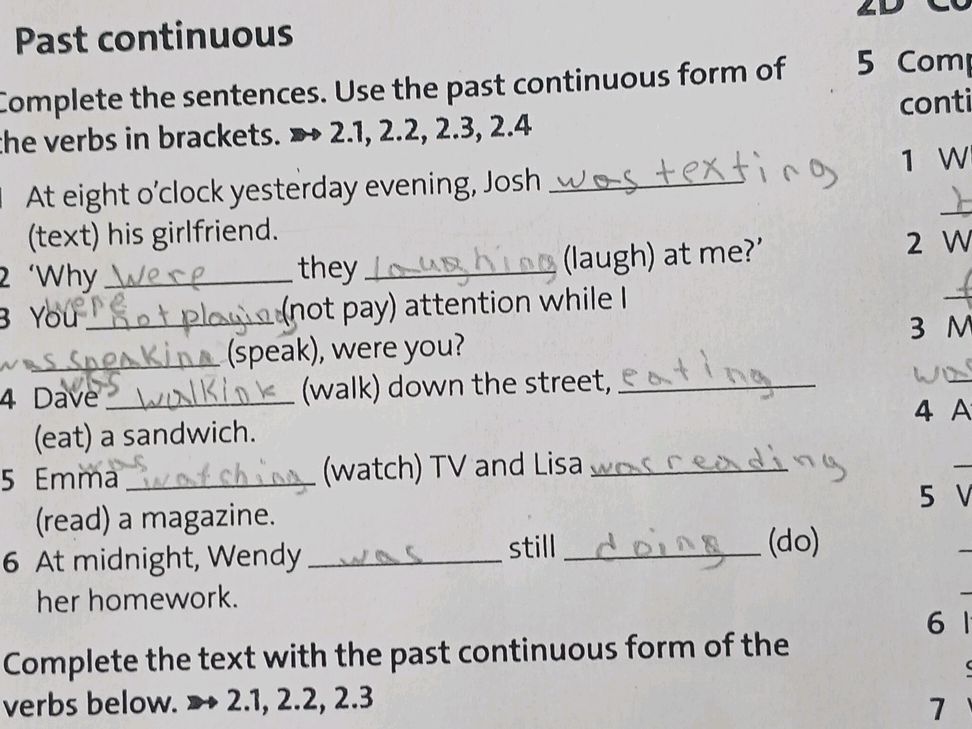 2D Co
Past continuous
Complete the sentences. Use the past continuous form of
the verbs in brackets. ➳ 2.1, 2.2, 2.3, 2.4
1 At eight o'clock yesterday evening, Josh was texting
(text) his girlfriend.
2 'Why were they laughing (laugh) at me?'
3 You were not playing (not pay) attention while I
was speaking (speak), were you?
4 Dave was walkink (walk) down the street, eating
(eat) a sandwich.
5 Emma was watching (watch) TV and Lisa was reading
(read) a magazine.
6 At midnight, Wendy was still doing (do)
her homework.
Complete the text with the past continuous form of the
verbs below. ➳ 2.1, 2.2, 2.3
5 Comp
conti
1 W
2 W
3 M
was
4 A
5 V
6 I
7